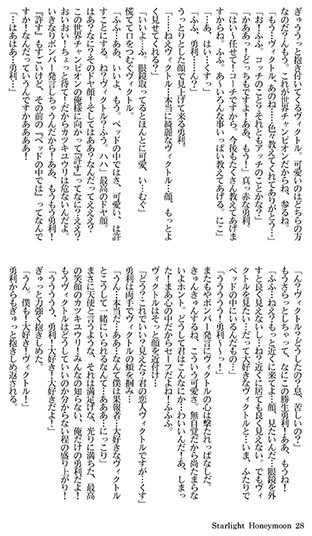 ぎゅううっと抱き付いてくるヴィクトル。可愛いのはどちらの方
なのだ？もう。これが世界チャンピオンだからね、参るね。
「もう…ヴィクトル、あのね…色々教えてくれてありがとう…」
「お！ふふ、コッチのこと？それともアッチのことかな？」
「かああっ！どっちもですよ！ああ、もう！」真っ赤な勇利
「はい～任せて！コーチですから。今後もたくさん教えてあげま
すからね。ふふ、あ～いろんな事いっぱい教えてあげる。にこ」
「…あ、はい…くすっ」
「ふふ、勇利…ん？」
うっとりした顔で見上げて来る勇利。
「…ねヴィクトル…本当に綺麗なヴィクトル…顔、もっとよ
く見せてくれる？」
「いいよ…ふ、眼鏡取ってるとほんとに可愛、い…むく」
慌てて口をつむぐヴィクトル。
「ふふ…ああ、いいよ、もう。ベッドの中ではさ、可愛い、は許
すことにする、ね？ヴィクトル？ふう、ハハ」最高のドヤ顔。
はあ？なに？そのドヤ顔！そしてはああ？なんだってええ？
この世界チャンピオンの俺様に向かって『許す』ってなに？ええ？
おいおい！ちょっと待て！だからカツキユウリは危ないんだよ。
いきなりボンバー発言しちゃうんだから！ああ、もうもう勇利！
『許す』もすごいけど、その前の『ベッドの中では』ってなんで
すか！なんだっていうんですかああああ！
「…はあはあ…勇利…」
「ん？ヴィクトル？どうしたの？息、苦しいの？」
もうさらっとしちゃって、なにこの勝生勇利！ああ、もうね！
「ふふ…はえ？もっと近くに来てよ…顔、見たいんだ…眼鏡を外
すと良く見えないし…ね？近くに居ても良く見えない。でもヴィ
クトルを見たい…だって大好きなヴィクトルと…いま、ふたりで
ベッドの中にいるんだもの…」
「うううううう！勇利い～っ！」
またもやボンバー発言にヴィクトルの心は撃たれっぱなしだ。
きゅんきゅんするね、こういう可愛さ。無自覚だから尚たまらな
いよホント！どうして君はこんなにかっわいいんだ！あ、しまっ
た！まあ心の中だからセーフだよね！ふふふ。
ヴィクトルはそっと顔を近付け…
「どう？これでいい？見えた？君の恋人ヴィクトルですが…くす」
勇利は両手でヴィクトルの頬を掴み…
「うん…本当だ…ああ…なんて僕は果報者…大好きなヴィクトル
とこうして一緒にいられるなんて…ああ…にっこり」
まさに天使と言うような、それは満足げな、光りに満ちた、最高
の笑顔のカツキユウリ！みんなの知らない、俺だけの勇利だよ！
もうヴィクトルはどうしていいのか分からない程の盛り上がり！
「ううううう、勇利！大好き！大好きだよ！」
ぎゅっと力強く抱きしめた。
「うん、僕も！大好き！ヴィクトル！」
勇利からもぎゅっと抱きしめ返される。
Starlight Honeymoon 28